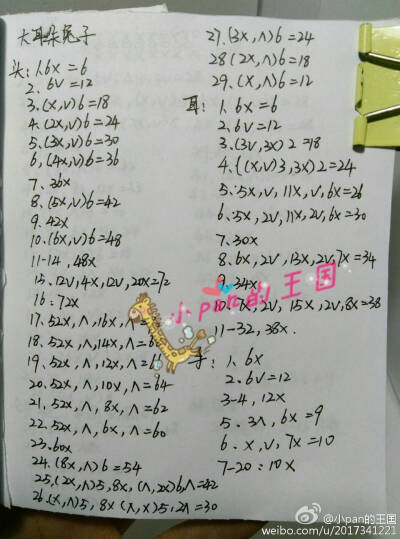 大耳朵兔子
头: 1. 6x = 6
2. 6v = 12
3. (x, v)6 = 18
4. (2x, v)6 = 24
5. (3x, v)6 = 30
6. (4x, v)6 = 36
7. 36x
8. (5x, v)6 = 42
9. 42x
10. (6x, v)6 = 48
11-14, 48x
15. 12v, 4x, 12v, 20x = 72
16: 72x
17. 52x, ʌ, 16x, ʌ
18. 52x, ʌ, 14x, ʌ = 6
19. 52x, ʌ, 12x, ʌ = 6
20. 52x, ʌ, 10x, ʌ = 64
21. 52x, ʌ, 8x, ʌ = 62
22. 52x, ʌ, 6x, ʌ = 60
23. 60x
24. (8x, ʌ)6 = 54
25. (2x, ʌ)5, 8x, (ʌ, 2x)6, ʌ = 42
26. (x, ʌ)5, 8x (ʌ, x)5, 2ʌ = 30
27. (3x, ʌ)6 = 24
28 (2x, ʌ)6 = 18
29. (x, ʌ)6 = 12
耳: 1. 6x = 6
2. 6v = 12
3. (3v, 3x) 2 = 18
4. ((x, v)3, 3x) 2 = 24
5. 5x, v, 11x, v, 6x = 26
6. 5x, 2v, 11x, 2v, 6x = 30
7. 30x
8. 6x, 2v, 13x, 2v, 7x = 34
9. 34x
10. 7x, 2v, 15x, 2v, 8x = 38
11-32, 38x.
手: 1. 6x
2. 6v = 12
3-4, 12x
5. 3ʌ, 6x = 9
6. x, v, 7x = 10
7-20: 10x
小pan的王国
@小pan的王国
weibo.com/u/2017341221